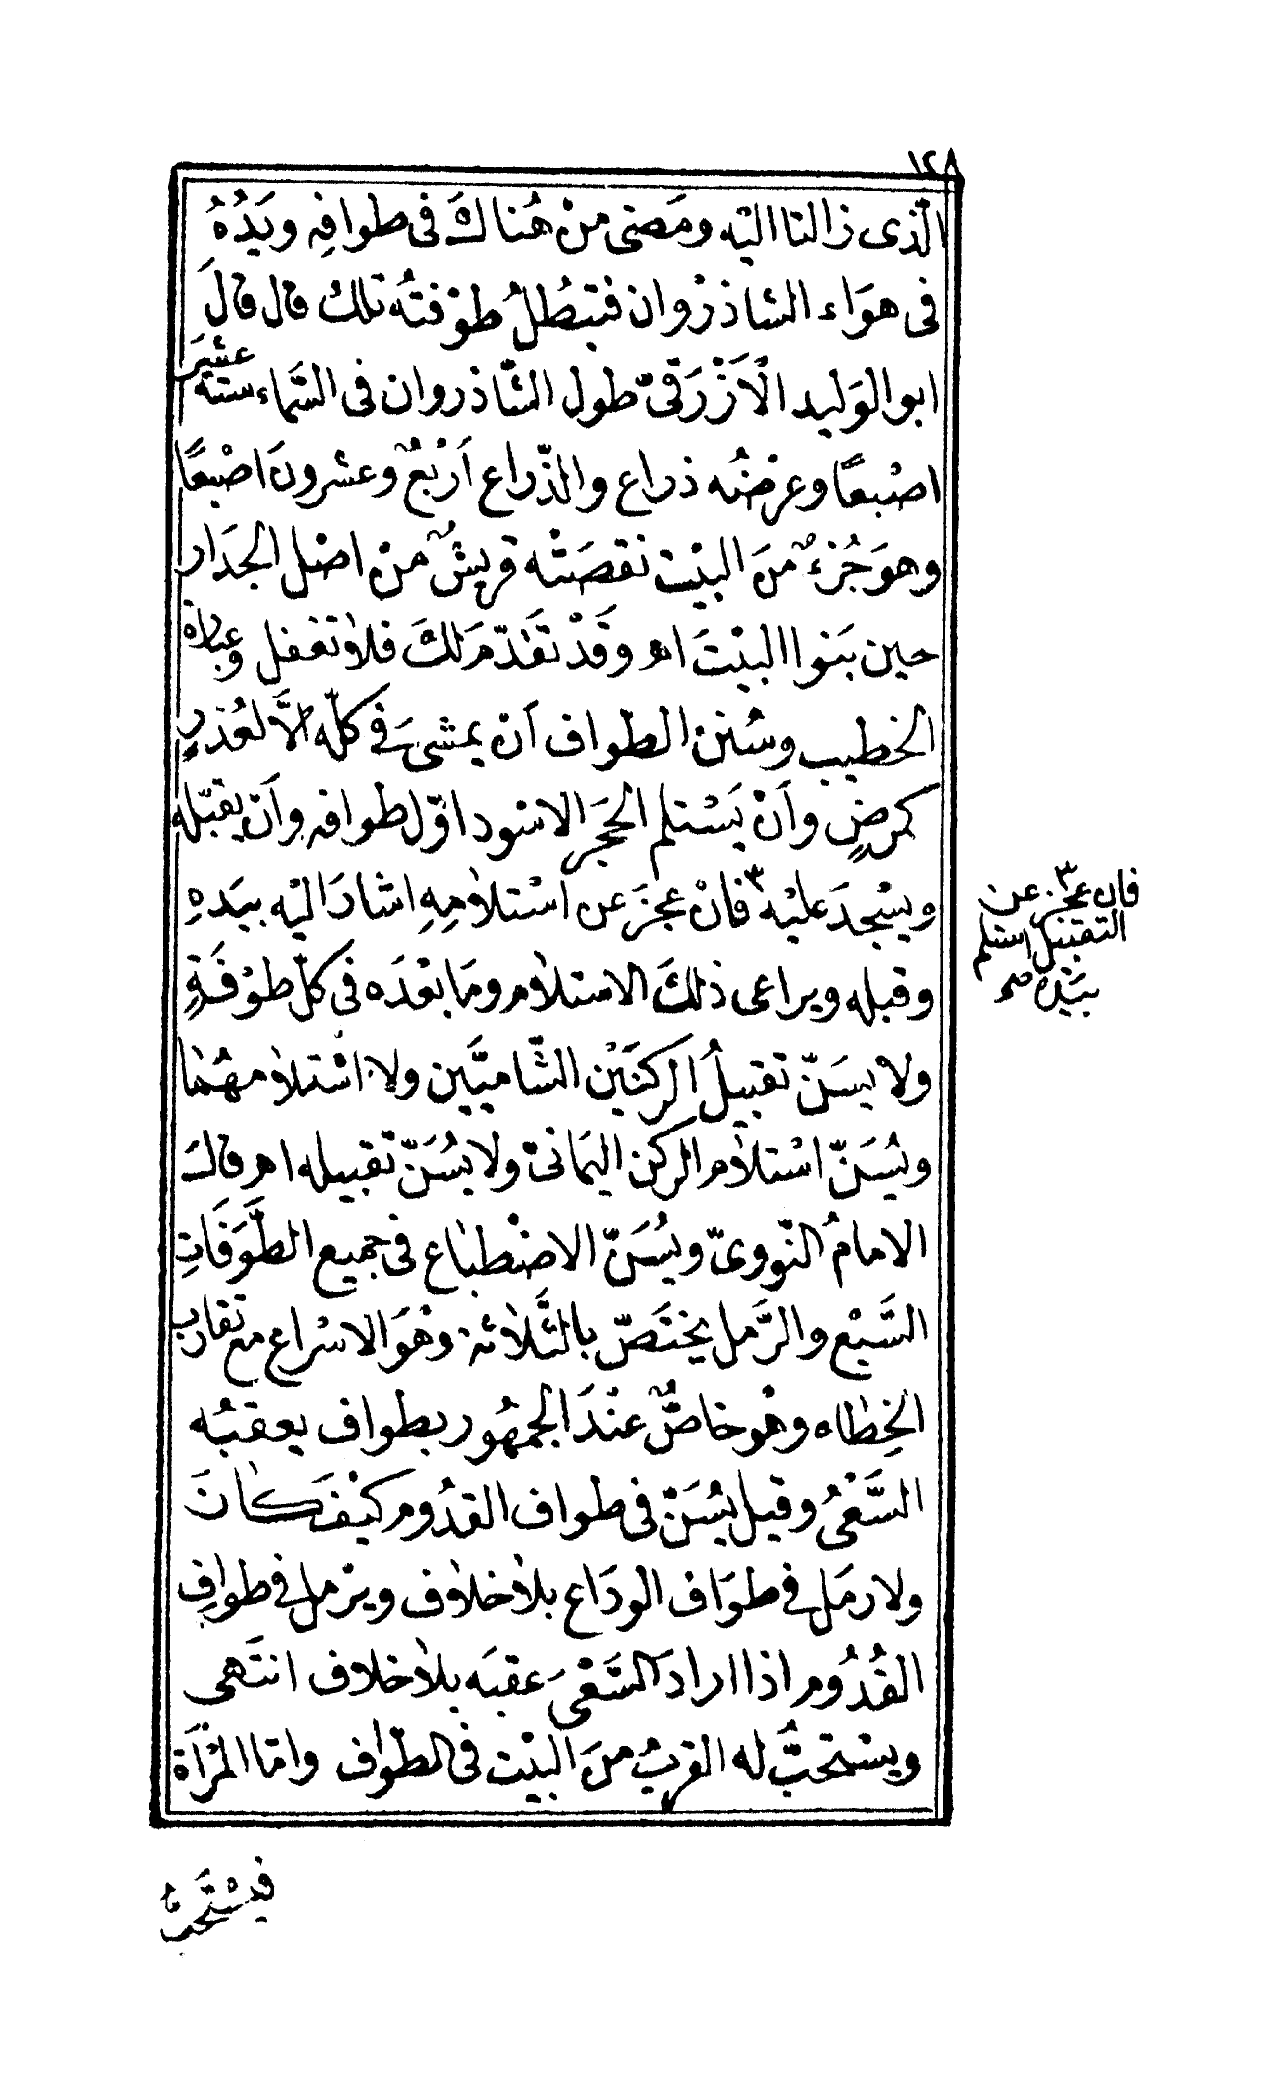 ١٢٨
الّذى زالتا اليْه ومَضى منْ هُناكَ فى طوافِه ويَدُهُ
فى هوَاء الشاذرْوان فتبطُلُ طوْفتُه تلكْ قال قالَ
ابو الوَليد الْازْرَقىّ طول الشّاذروان فى السَّماء ستّة عشَرَ
اصْبعًا وعرْضُه ذراع والذّراع اَرْبعٌ وعشرونَ اصْبعًا
وهوَ جُزءٌ منَ البيْت نقصَتْه قريشٌ منْ اصْل الجدَار
حين بَنوا البيْتَ اهـ وقَدْ تقَدّمَ ذلكَ فلا تغفل وعبارة
الخطيب وسُنَن الطواف اَنْ يمشىَ فى كلّه الاَّ لعُذرٍ
كمرضٍ واَنْ يَسْتلم الحجَر الاسْود اوّل طوافه واَنْ يقبّله
ويسْجدَ عليْه ٣ فانْ عجزَ عن اسْتلامِهِ اشارَ اليْه بيَدهِ
وقبله ويراعى ذلكَ الاستلام ومَا بعْدَه فى كلّ طوْفَةٍ
ولا يسَنّ تقبيلُ الركنَيْن الشّاميَّين ولا اسْتلامهُمَا
ويُسَنّ اسْتلام الركن اليمَانىّ ولا يُسَنّ تقبيله اهـ قال
الامامُ النّووىّ ويُسَنّ الاضْطباع فى جميع الطَّوَفَاتِ
السَّبْع والرَّمل يختَصّ بالثَّلاثة وهُوَ الاسْراع مع تقارب
الخِطاه وهْو خاصٌّ عنْدَ الجمهُور بطواف يعقبُه
السَّعْىُ وقيل يُسَنّ فى طواف القدُوم كيْفَ كانَ
ولا رمَل فى طوَاف الودَاع بلا خلاف ويرْمل فى طوافِ
القُدُوم اذا ارادَ السَّعْىَ عقبَه بلا خلاف انتَهى
ويسْتحَبُّ له القربُ منَ البيْت فى الطّواف وامّا المرْاَة
فيسْتَحبُّ
فان عجز ٣ عن
التقبيل استلم
بيَده صح